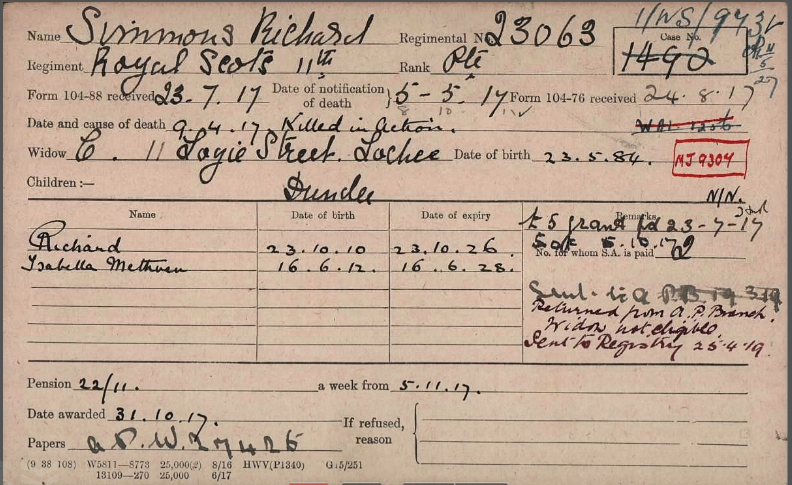 11/WS/9732
Name Simmons Richard Regimental No. 23063 Case No. 1490
Regiment Royal Scots 11th Rank Pte
Form 104-88 received 23.7.17 Date of notification of death 5-5.17 Form 104-76 received 24.8.17
Date and cause of death 9.4.17 Killed in Action.
Widow C. 11 Logie Street. Lochee Date of birth 23.5.84. MJ9304
Children:— Dundee N/N.
Name Date of birth Date of expiry Remarks
£5 grant pd 23-7-17
Richard 23.10.10 23.10.26. 5.10.17
Isabella Methven 16.6.12. 16.6.28. No. for whom S.A. is paid 2
Sent to A.P.B. 19.3.19
Returned from A.P. Branch.
Widow not eligible.
Sent to Registry 25.4.19.
Pension 22/11. a week from 5.11.17.
Date awarded 31.10.17. If refused, reason
Papers a P.W.27426
(9 38 108) W5811—8773 25,000(2) 8/16 HWV(P1340) G15/251
13109—270 25,000 6/17